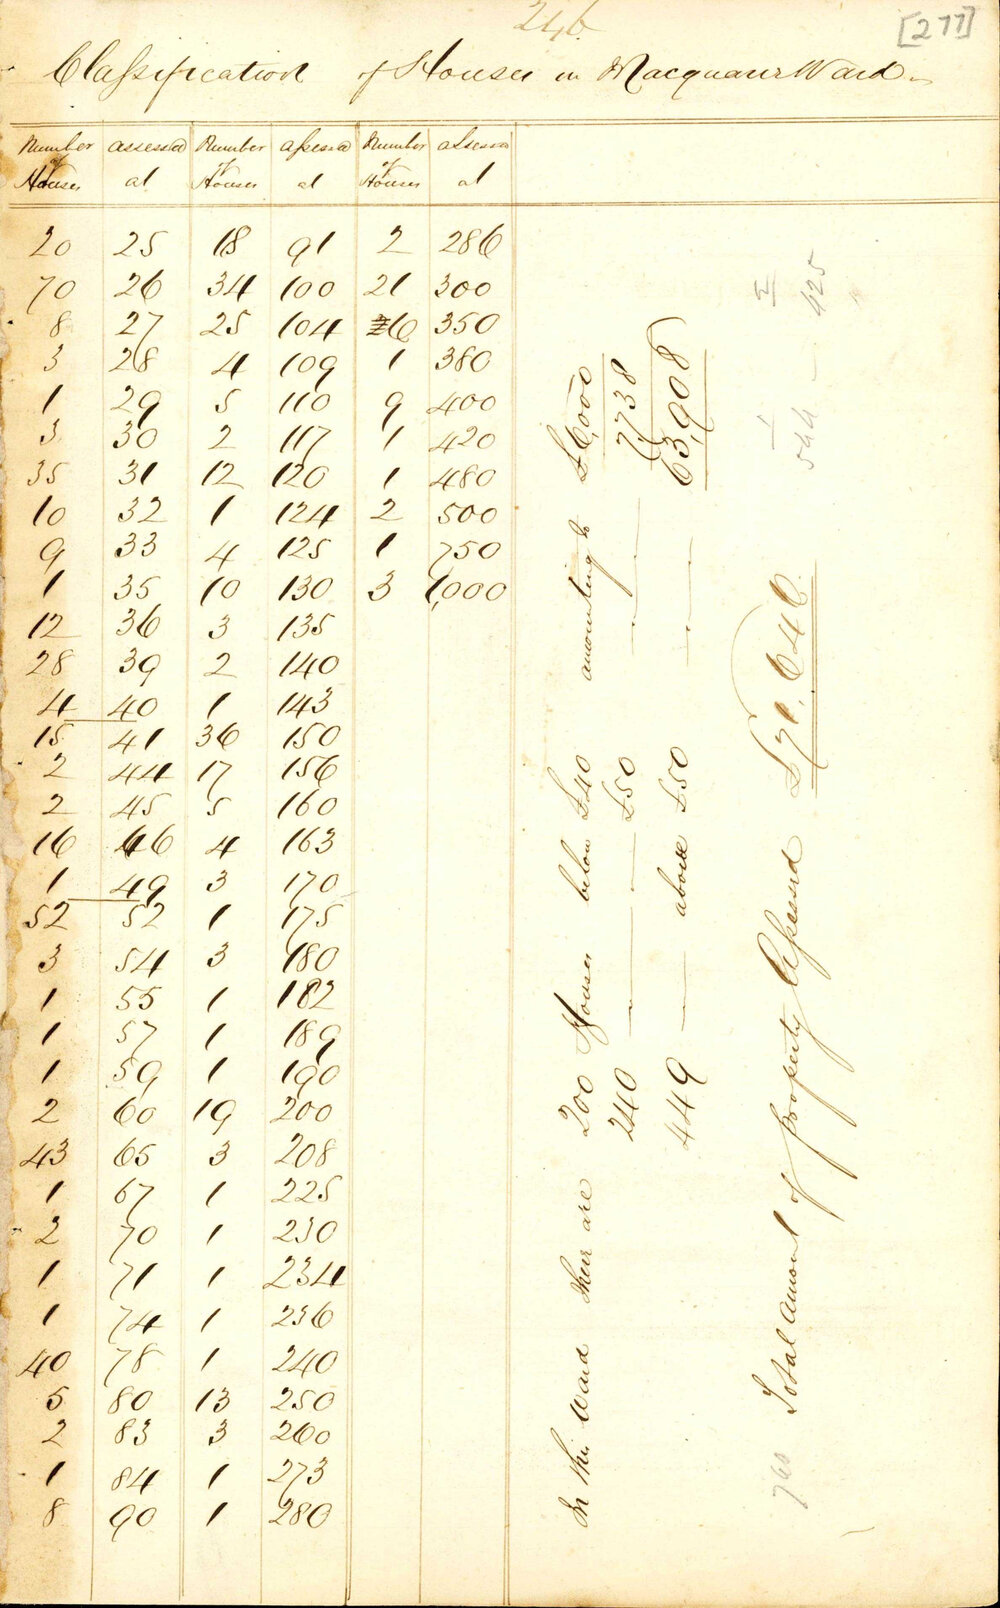 246
[277]
Classification of Houses in Macquarie Ward
Number of Houses | assessed at | Number of Houses | assessed at | Number of Houses | assessed at
20 25 18 91 2 286
70 26 34 100 21 300
8 27 25 104 6 350
3 28 4 109 1 380
1 29 5 110 9 400
3 30 2 117 1 420
35 31 12 120 1 480
10 32 1 124 2 500
9 33 4 125 1 750
1 35 10 130 3 1,000
12 36 3 135
28 39 2 140
4 40 1 143
15 41 36 150
2 44 17 156
2 45 5 160
16 46 4 163
1 49 3 170
52 52 1 175
3 54 3 180
1 55 1 182
1 57 1 189
1 59 1 190
2 60 19 200
43 65 3 208
1 67 1 225
2 70 1 230
1 71 1 234
1 74 1 236
40 78 1 240
5 80 13 250
2 83 3 260
1 84 1 273
8 90 1 280
In this Ward there are 200 Houses below £40 amounting to £6,000
240 — — £50 — — 7,738
449 — above £50 — — 63,908
Total amount of property Assessed £71,646
760
544 — 425